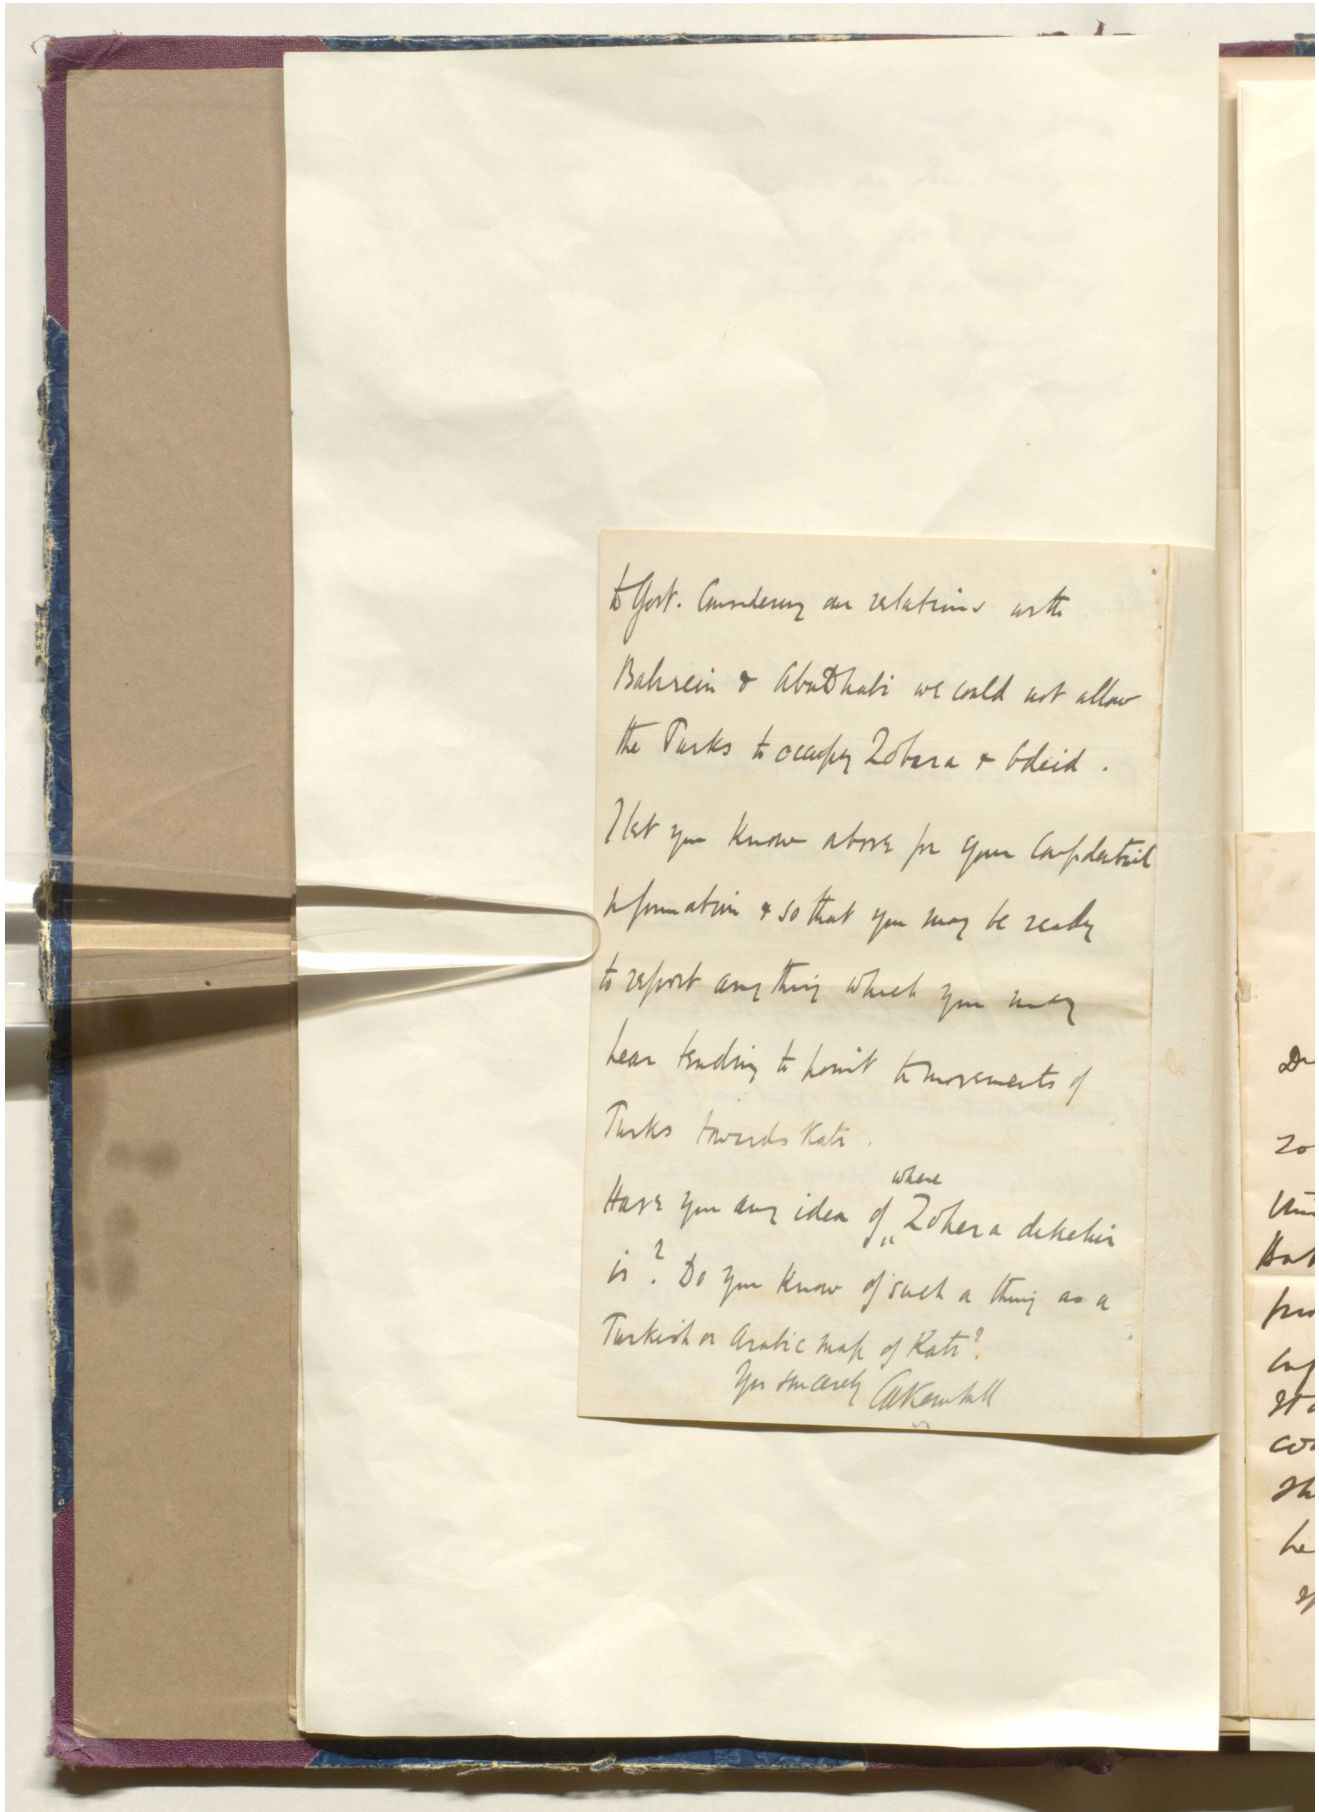 to Govt. Considering our relations with
Bahrein & AbuDhabi we could not allow
the Turks to occupy Zobara & Odeid.
I let you know above for your Confidential
information & so that you may be ready
to report any thing which you may
hear tending to point to movements of
Turks towards Katr.
where
Have you any idea of Zohera
is? Do you know of such a thing as a
Turkish or Arabic map of Katr?
Yrs sincerely CAKemball
Dr
zo
Hat
co
he